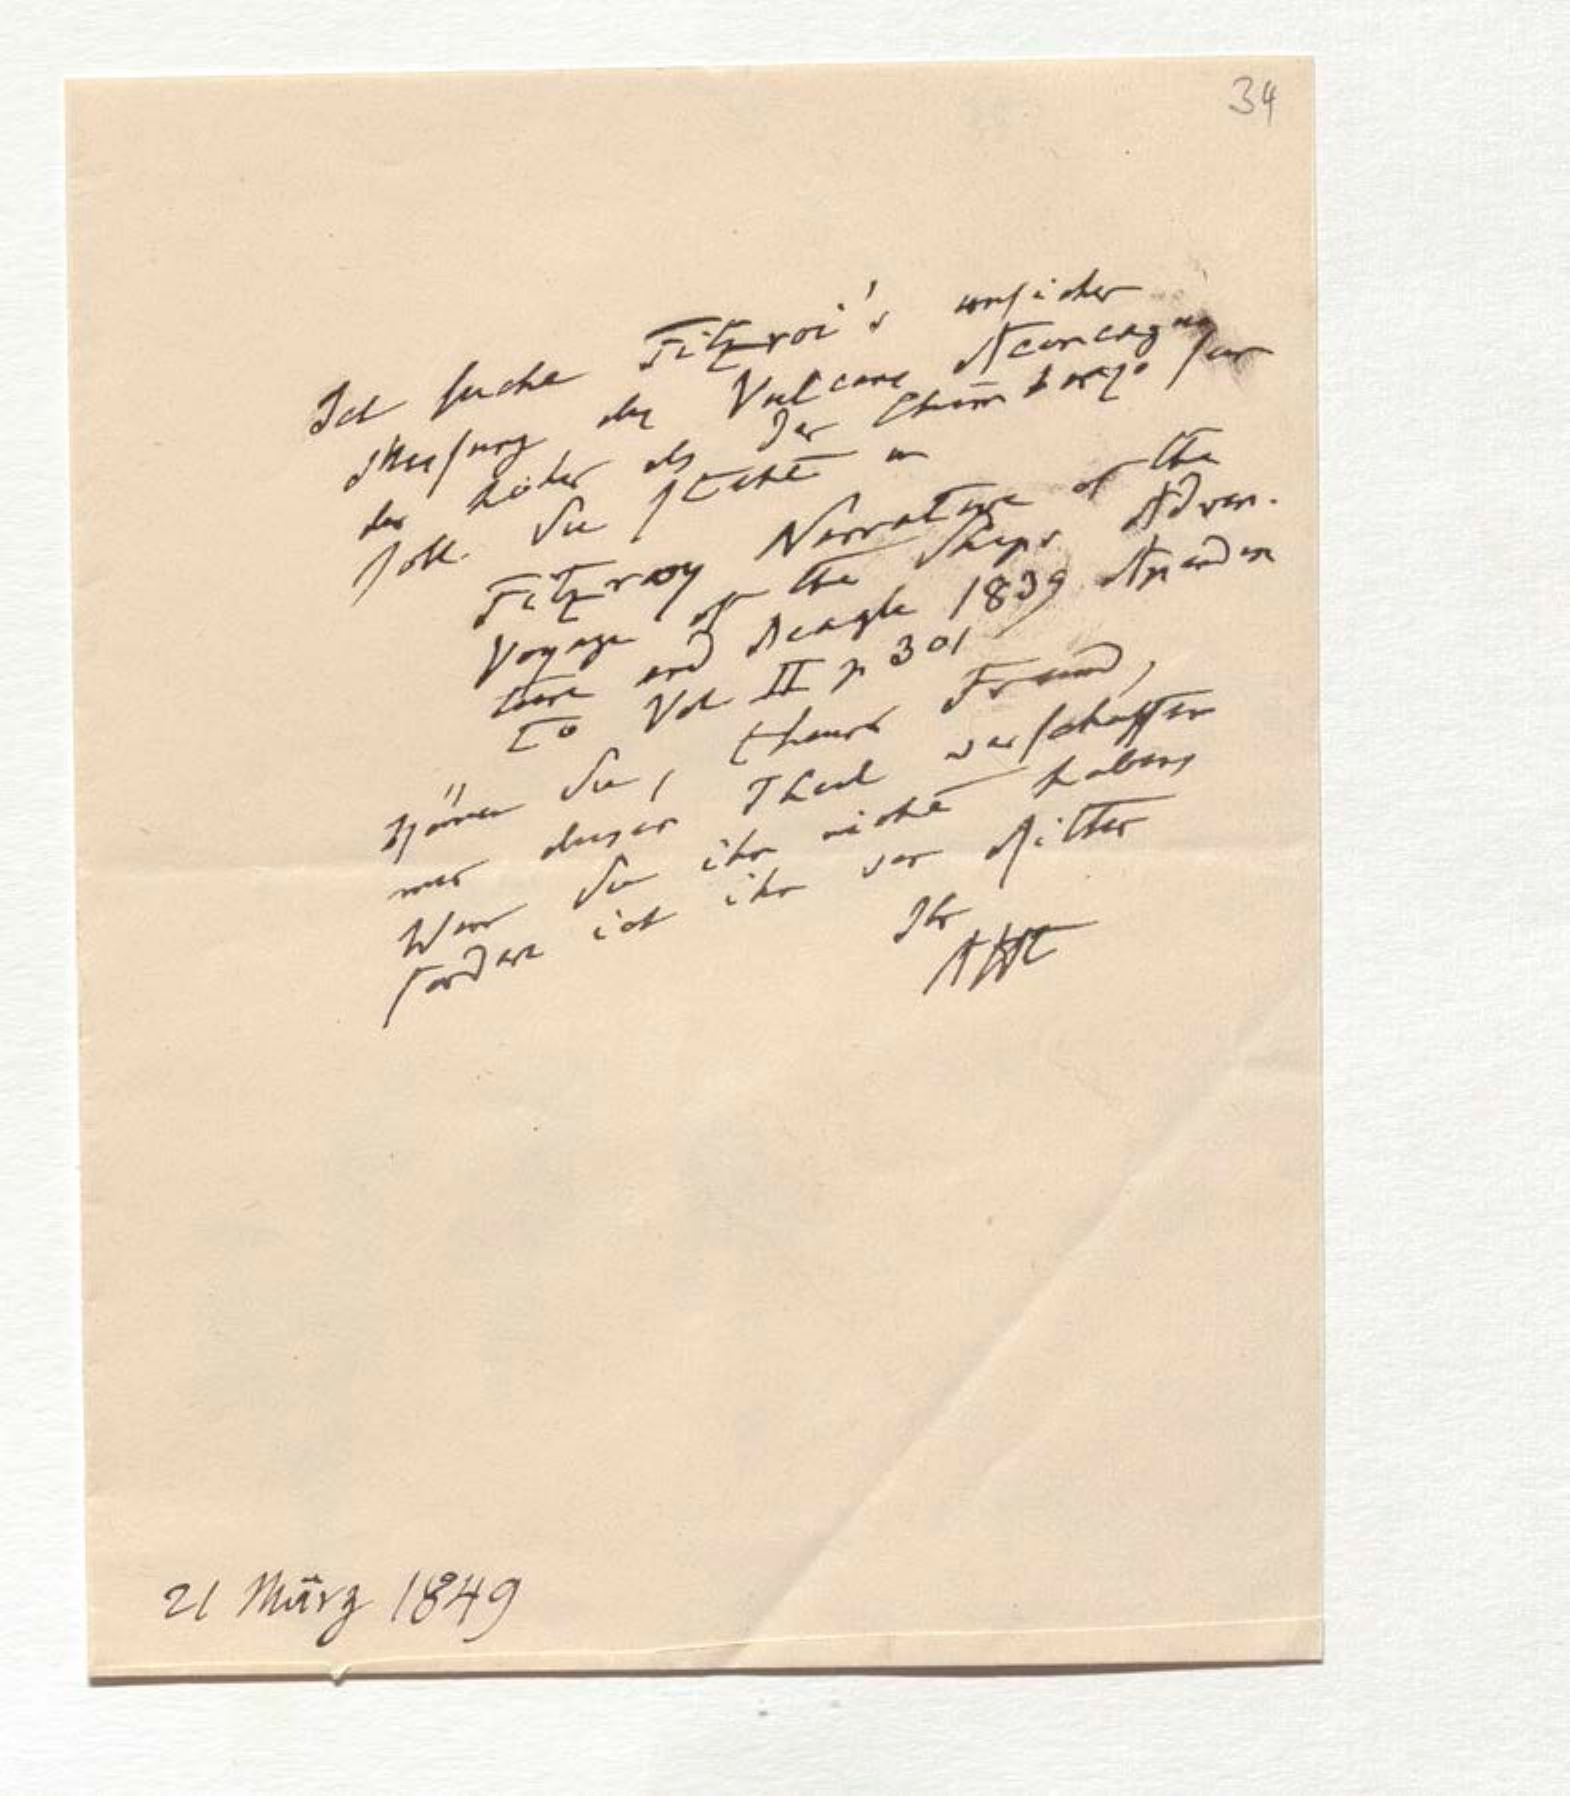 34
Ich suche Fitzroi's unsicher
Messung des Vulcans Aconcagua
der höher als der Chimborazo sein
soll. Sie steht in
Fitzroy Narrative of the
Voyage of the Ships Adven-
ture and Beagle 1839 Apendix
to Vol II p 301
Könen Sie, theurer Freund,
mir dieser Theil verschaffen
Wen Sie ihn nicht haben,
fordere ich ihn von Ritter
Ihr
AHt
21 März 1849